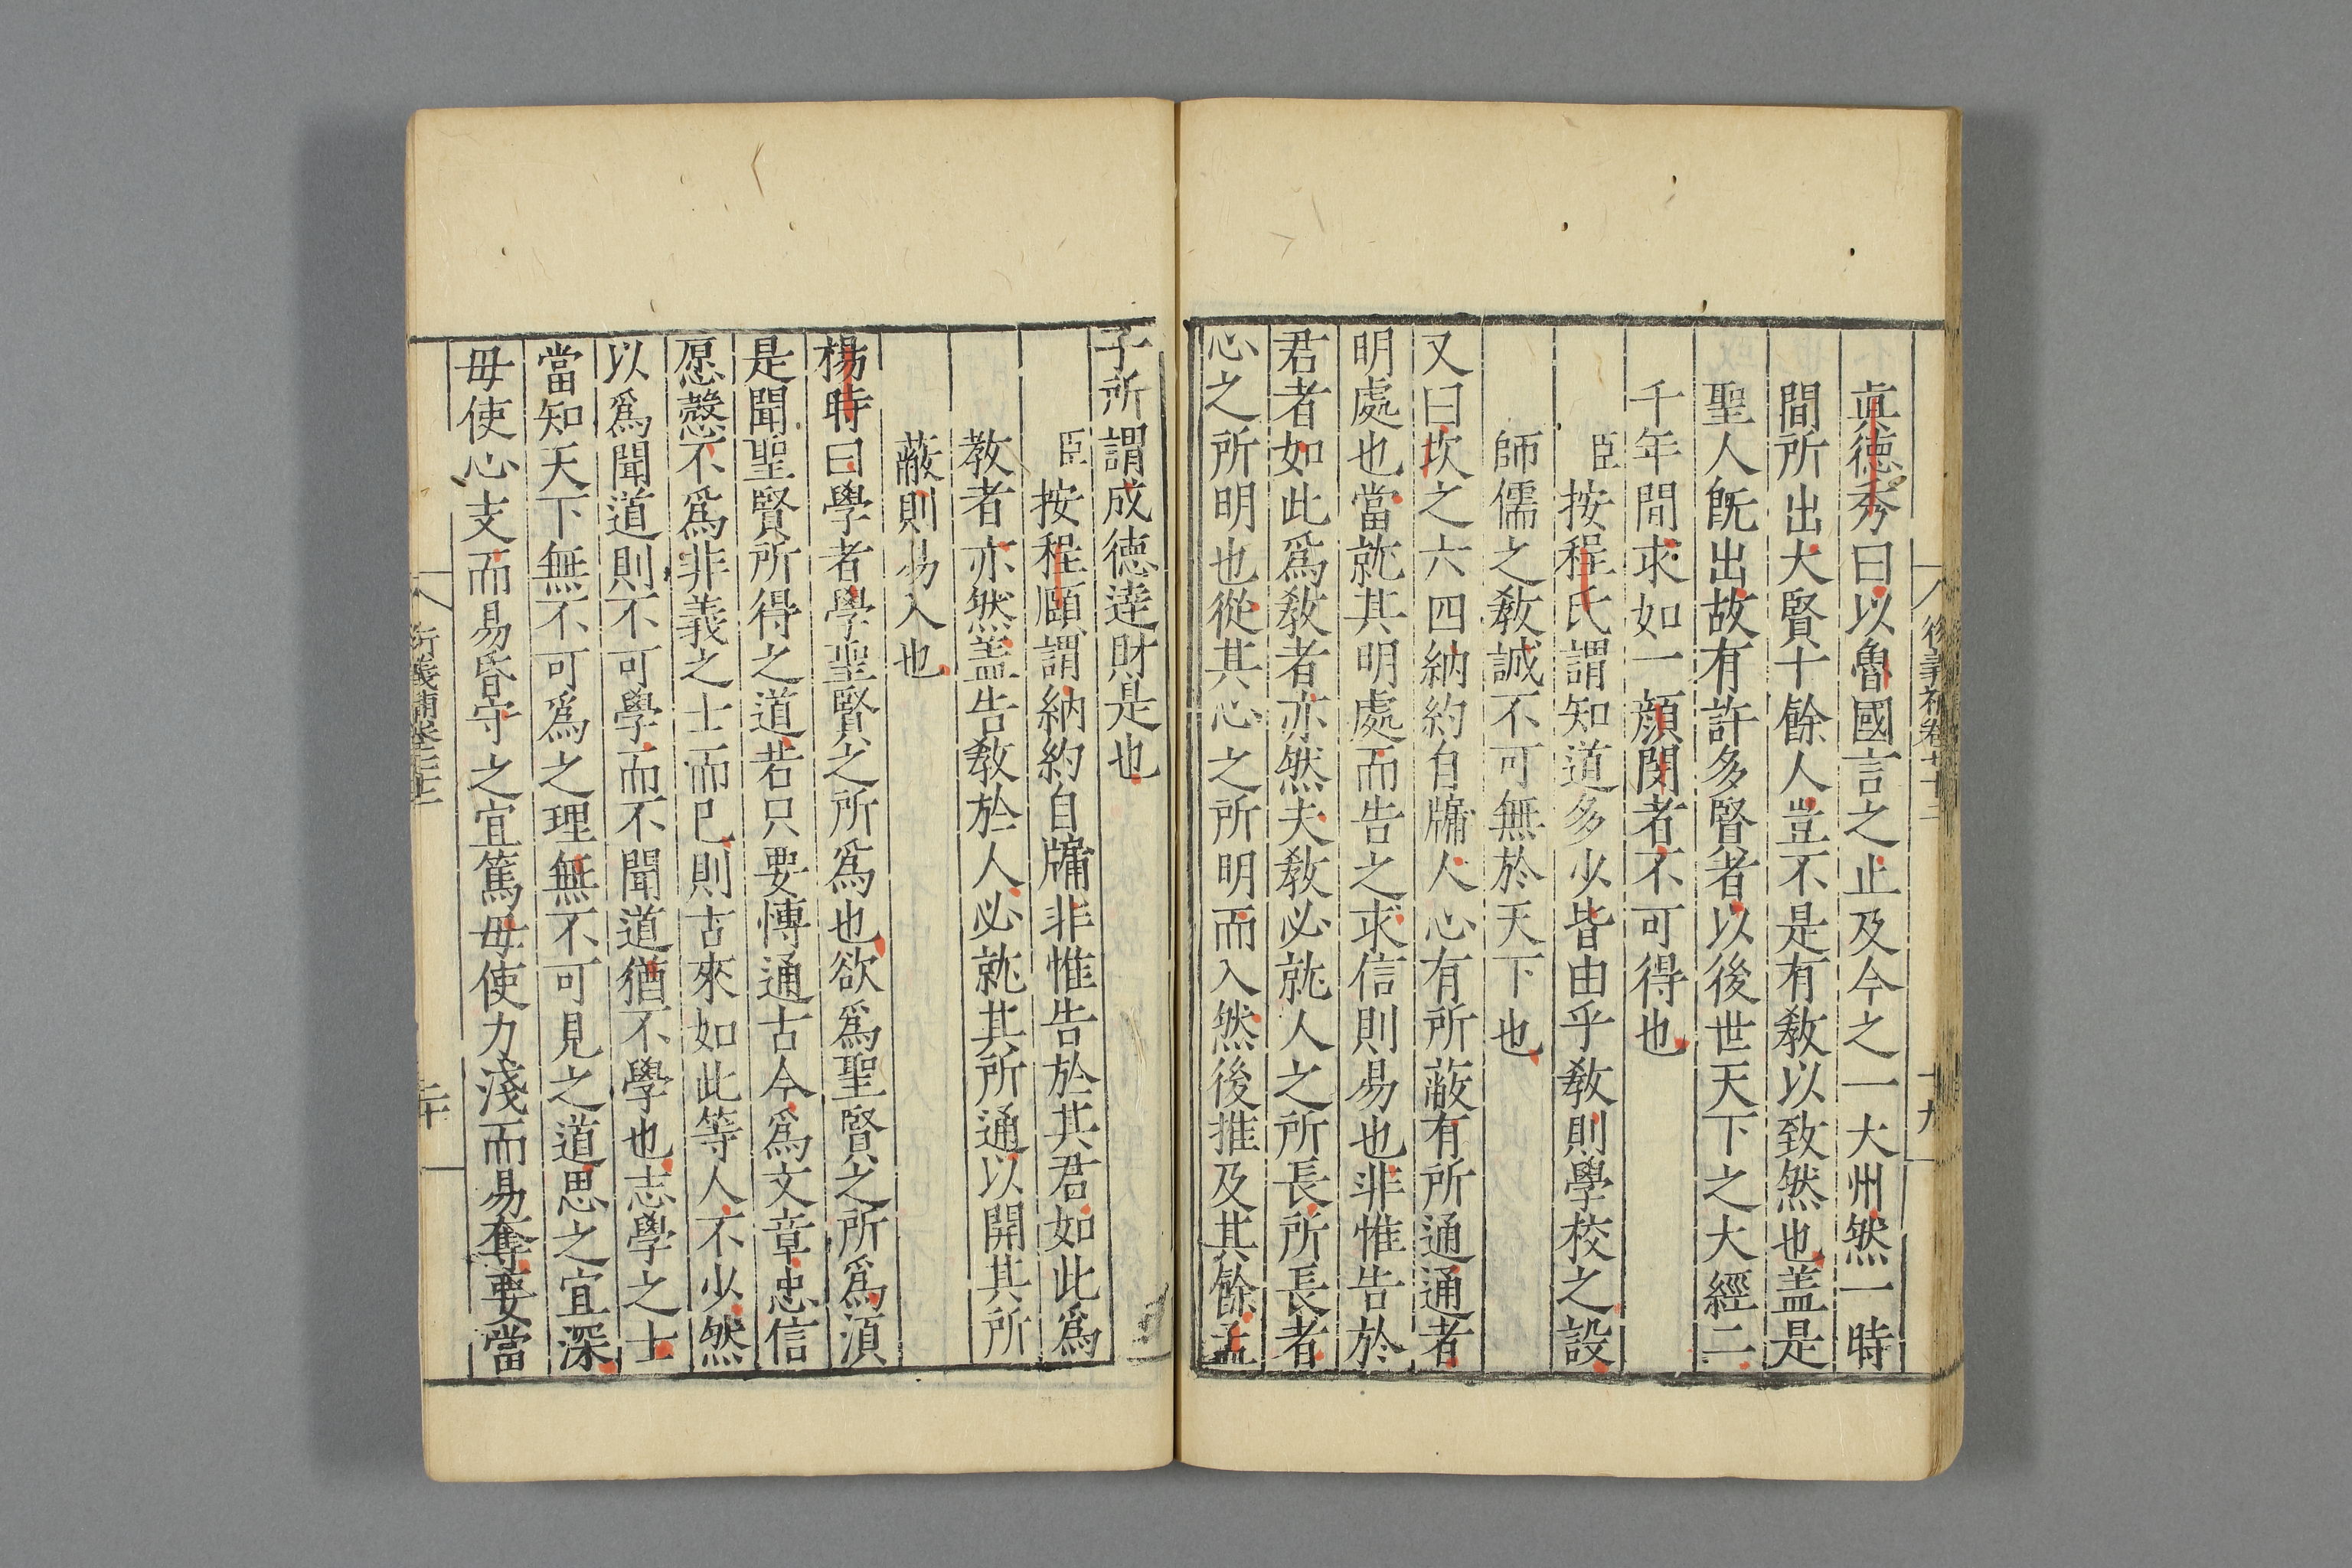 眞德秀曰以魯國言之止及今之一大州然一時
間所出大賢十餘人豈不是有敎以致然也盖是
聖人旣出故有許多賢者以後世天下之大經二
千年間求如一顔閔者不可得也
臣按程氏謂知道多少皆由乎敎則學校之設
師儒之敎誠不可無於天下也
又曰坎之六四納約自牖人心有所蔽有所通通者
明處也當就其明處而告之求信則易也非惟告於
君者如此爲敎者亦然夫敎必就人之所長所長者
心之所明也從其心之所明而入然後推及其餘孟
子所謂成德達財是也
臣按程頤謂納約自牖非惟告於其君如此爲
敎者亦然盖告敎於人必就其所通以開其所
蔽則易入也
楊時曰學者學聖賢之所爲也欲爲聖賢之所爲須
是聞聖賢所得之道若只要博通古今爲文章忠信
愿慤不爲非義之士而已則古來如此等人不少然
以爲聞道則不可學而不聞道猶不學也志學之士
當知天下無不可爲之理無不可見之道思之宜深
毋使心支而易昏守之宜篤毋使力淺而易奪要當
衍義補卷
二十
十九